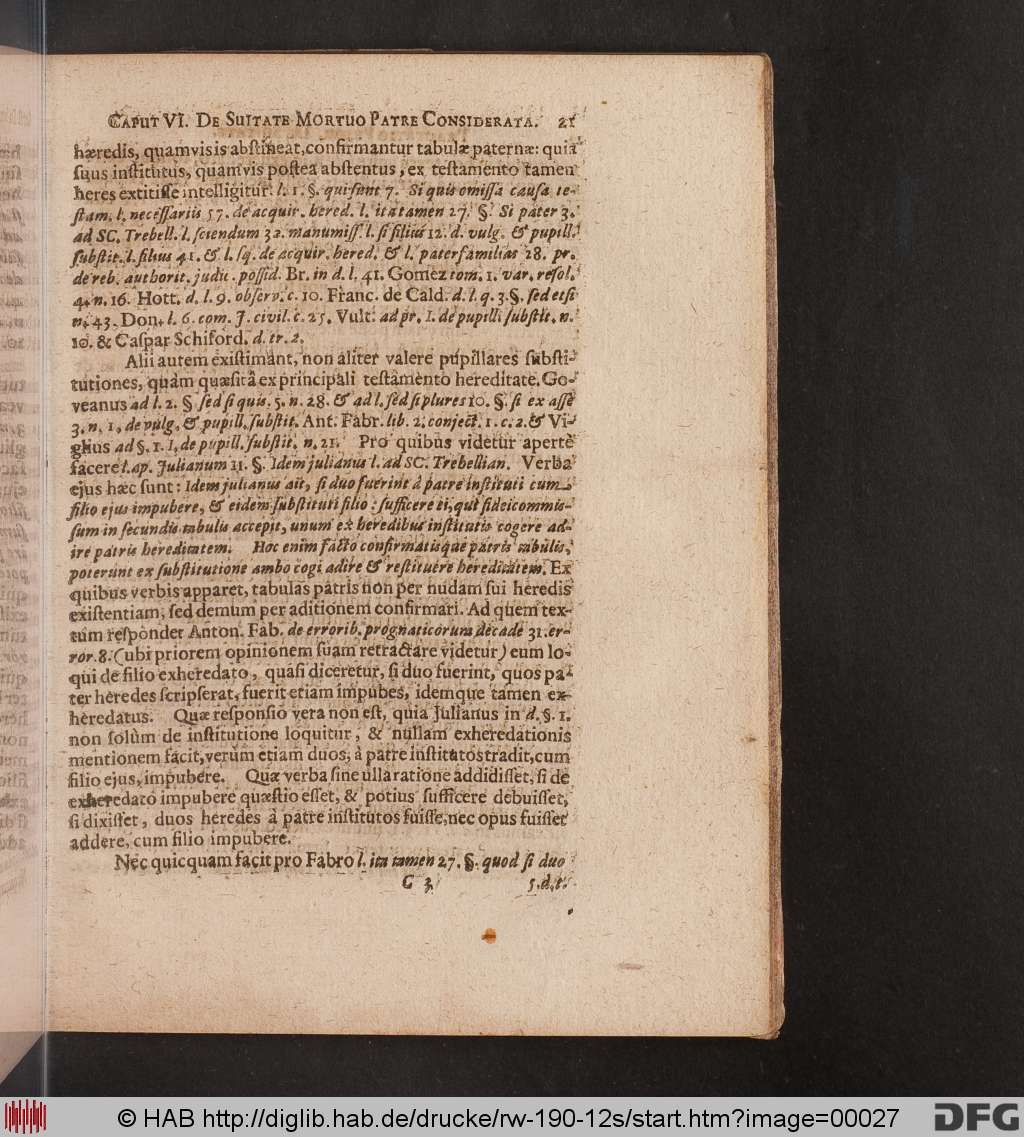 CAPUT VI. DE SUITATE MORTUO PATRE CONSIDERATA. 21
hæredis, quamvis is abstineat, confirmantur tabulæ paternæ: quia
suus institutus, quamvis postea abstentus, ex testamento tamen
heres extitisse intelligitur. l. 1. §. qui sunt 7. Si quis omissa causa te-
stam. l. necessariis 57. de acquir. hered. l. ita tamen 27. §. Si pater 3.
ad SC. Trebell. l. sciendum 32. manumiss. l. si filius 12. d. vulg. & pupill.
substit. l. filius 41. & l. sq. de acquir. hered. & l. paterfamilias 28. pr.
de reb. authorit. judic. possid. Br. in d. l. 41. Gomez tom. 1. var. resol.
4. n. 16. Hott. d. l. 9. observ. c. 10. Franc. de Cald. d. l. q. 3. §. sed etsi
n. 43. Don. l. 6. com. J. civil. c. 25. Vult. ad pr. I. de pupill. substit. n.
10. & Caspar Schiford. d. tr. 2.
Alii autem existimant, non aliter valere pupillares substi-
tutiones, quàm quæsitâ ex principali testamento hereditate. Go-
veanus ad l. 2. §. sed si quis. 5. n. 28. & ad l. sed si plures 10. §. si ex asse
3. n. 1, de vulg. & pupill. substit. Ant. Fabr. lib. 2. conject. 1. c. 2. & Vi-
glius ad §. 1. I, de pupill. substit. n. 21. Pro quibus videtur apertè
facere l. ap. Julianum 11. §. Idem julianus l. ad SC. Trebellian. Verba
ejus hæc sunt: Idem julianus ait, si duo fuerint à patre instituti cum
filio ejus impubere, & eidem substituti filio: sufficere ei, qui fideicommis-
sum in secundis tabulis accepit, unum ex heredibus institutis cogere ad-
ire patris hereditatem. Hoc enim facto confirmatisque patris tabulis,
poterunt ex substitutione ambo cogi adire & restituere hereditatem. Ex
quibus verbis apparet, tabulas patris non per nudam sui heredis
existentiam, sed demum per aditionem confirmari. Ad quem tex-
tum respondet Anton. Fab. de errorib. prognaticorum decade 31. er-
ror. 8. (ubi priorem opinionem suam retractare videtur) eum lo-
qui de filio exheredato, quasi diceretur, si duo fuerint, quos pa-
ter heredes scripserat, fuerit etiam impubes, idemque tamen ex-
heredatus. Quæ responsio vera non est, quia Julianus in d. §. 1.
non solùm de institutione loquitur, & nullam exheredationis
mentionem facit, verùm etiam duos, à patre institutos tradit, cum
filio ejus, impubere. Quæ verba sine ulla ratione addidisset, si de
exheredato impubere quæstio esset, & potius sufficere debuisset,
si dixisset, duos heredes à patre institutos fuisse, nec opus fuisset
addere, cum filio impubere.
Nec quicquam facit pro Fabro l. ita tamen 27. §. quod si duo
C 3 5. d. t.
© HAB http://diglib.hab.de/drucke/rw-190-12s/start.htm?image=00027
DFG